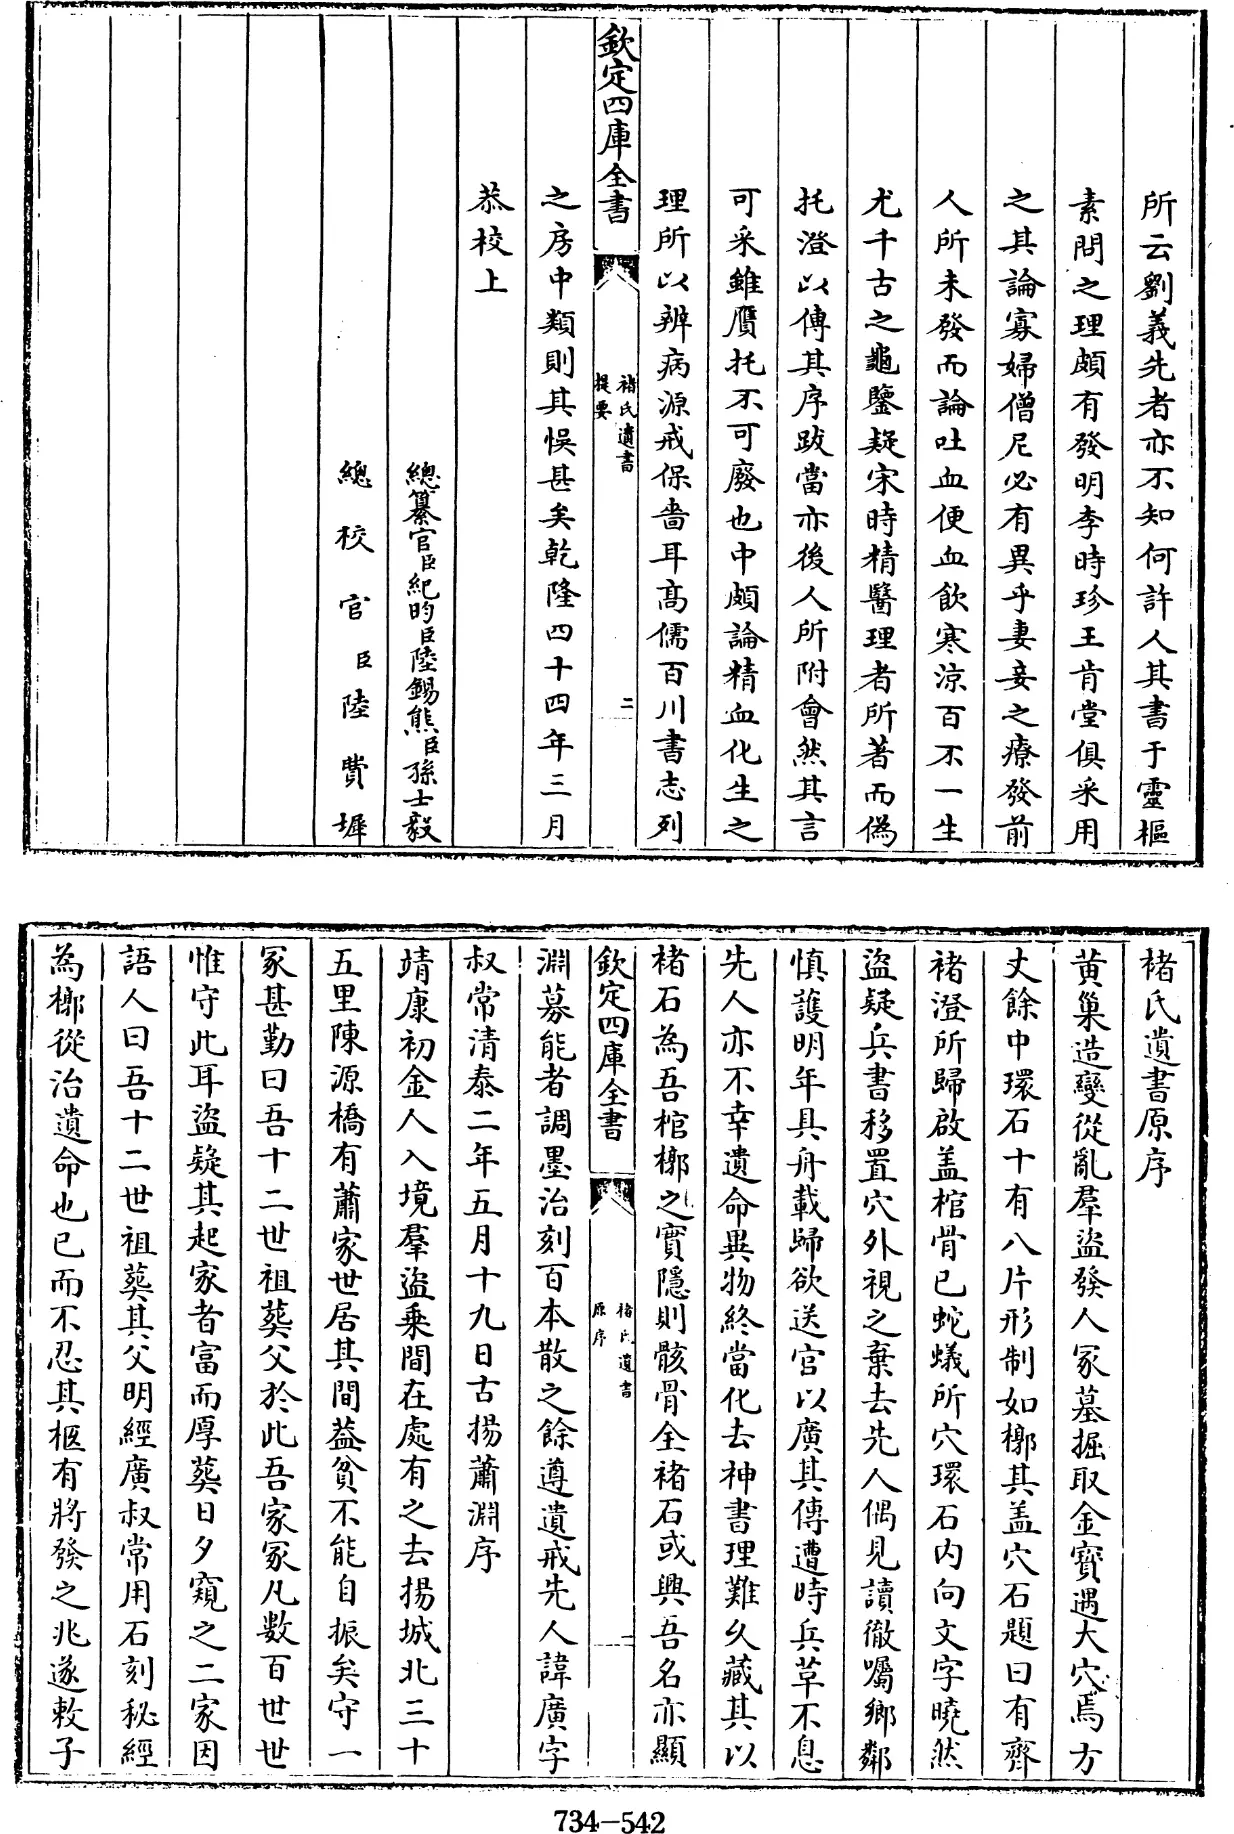 所云劉義先者亦不知何許人其書于靈樞
素問之理頗有發明李時珍王肯堂俱采用
之其論寡婦僧尼必有異乎妻妾之療發前
人所未發而論吐血便血飲寒涼百不一生
尤千古之龜鑒疑宋時精醫理者所著而偽
托澄以傳其序跋當亦後人所附會然其言
可采雖贋托不可廢也中頗論精血化生之
理所以辨病源戒保嗇耳高儒百川書志列
欽定四庫全書
褚氏遺書
提要
二
之房中類則其悞甚矣乾隆四十四年三月
恭校上
總纂官臣紀昀臣陸錫熊臣孫士毅
總校官臣陸費墀
褚氏遺書原序
黃巢造變從亂羣盜發人冢墓掘取金寶遇大穴焉方
丈餘中環石十有八片形制如槨其盖穴石題曰有齊
褚澄所歸啟盖棺骨已蛇蟻所穴環石内向文字曉然
盜疑兵書移置穴外視之棄去先人偶見讀徹囑鄉鄰
慎護明年具舟載歸欲送官以廣其傳遭時兵革不息
先人亦不幸遺命異物終當化去神書理難久藏其以
褚石為吾棺槨之實隱則骸骨全褚石或興吾名亦顯
欽定四庫全書
褚氏遺書
原序
一
淵募能者調墨治刻百本散之餘遵遺戒先人諱廣字
叔常清泰二年五月十九日古揚蕭淵序
靖康初金人入境羣盜乘間在處有之去揚城北三十
五里陳源橋有蕭家世居其間益貧不能自振矣守一
冢甚勤曰吾十二世祖葬父於此吾家冢凡數百世世
惟守此耳盜疑其起家者富而厚葬日夕窺之二家因
語人曰吾十二世祖葬其父明經廣叔常用石刻秘經
為槨從治遺命也已而不忍其柩有將發之兆遂敕子
734-542